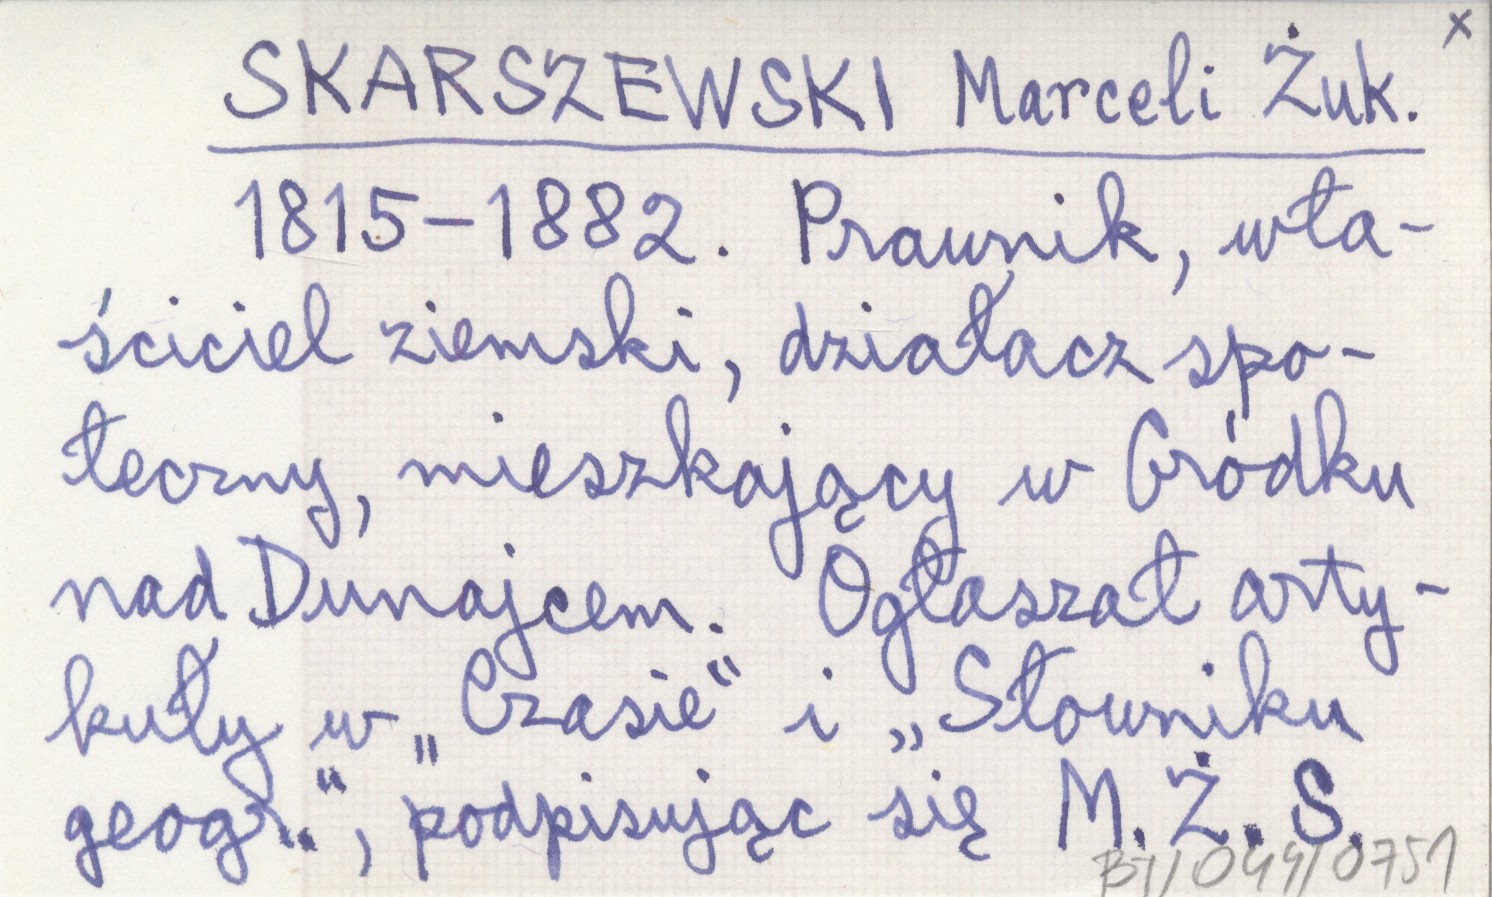 x
SKARSZEWSKI Marceli Żuk.
1815-1882. Prawnik, wła-
ściciel ziemski, działacz spo-
łeczny, mieszkający w Gródku
nad Dunajcem. Ogłaszał arty-
kuły w „Czasie“ i „Słowniku
geogr.“, podpisując się M. Ż. S.
BJ/044/0751